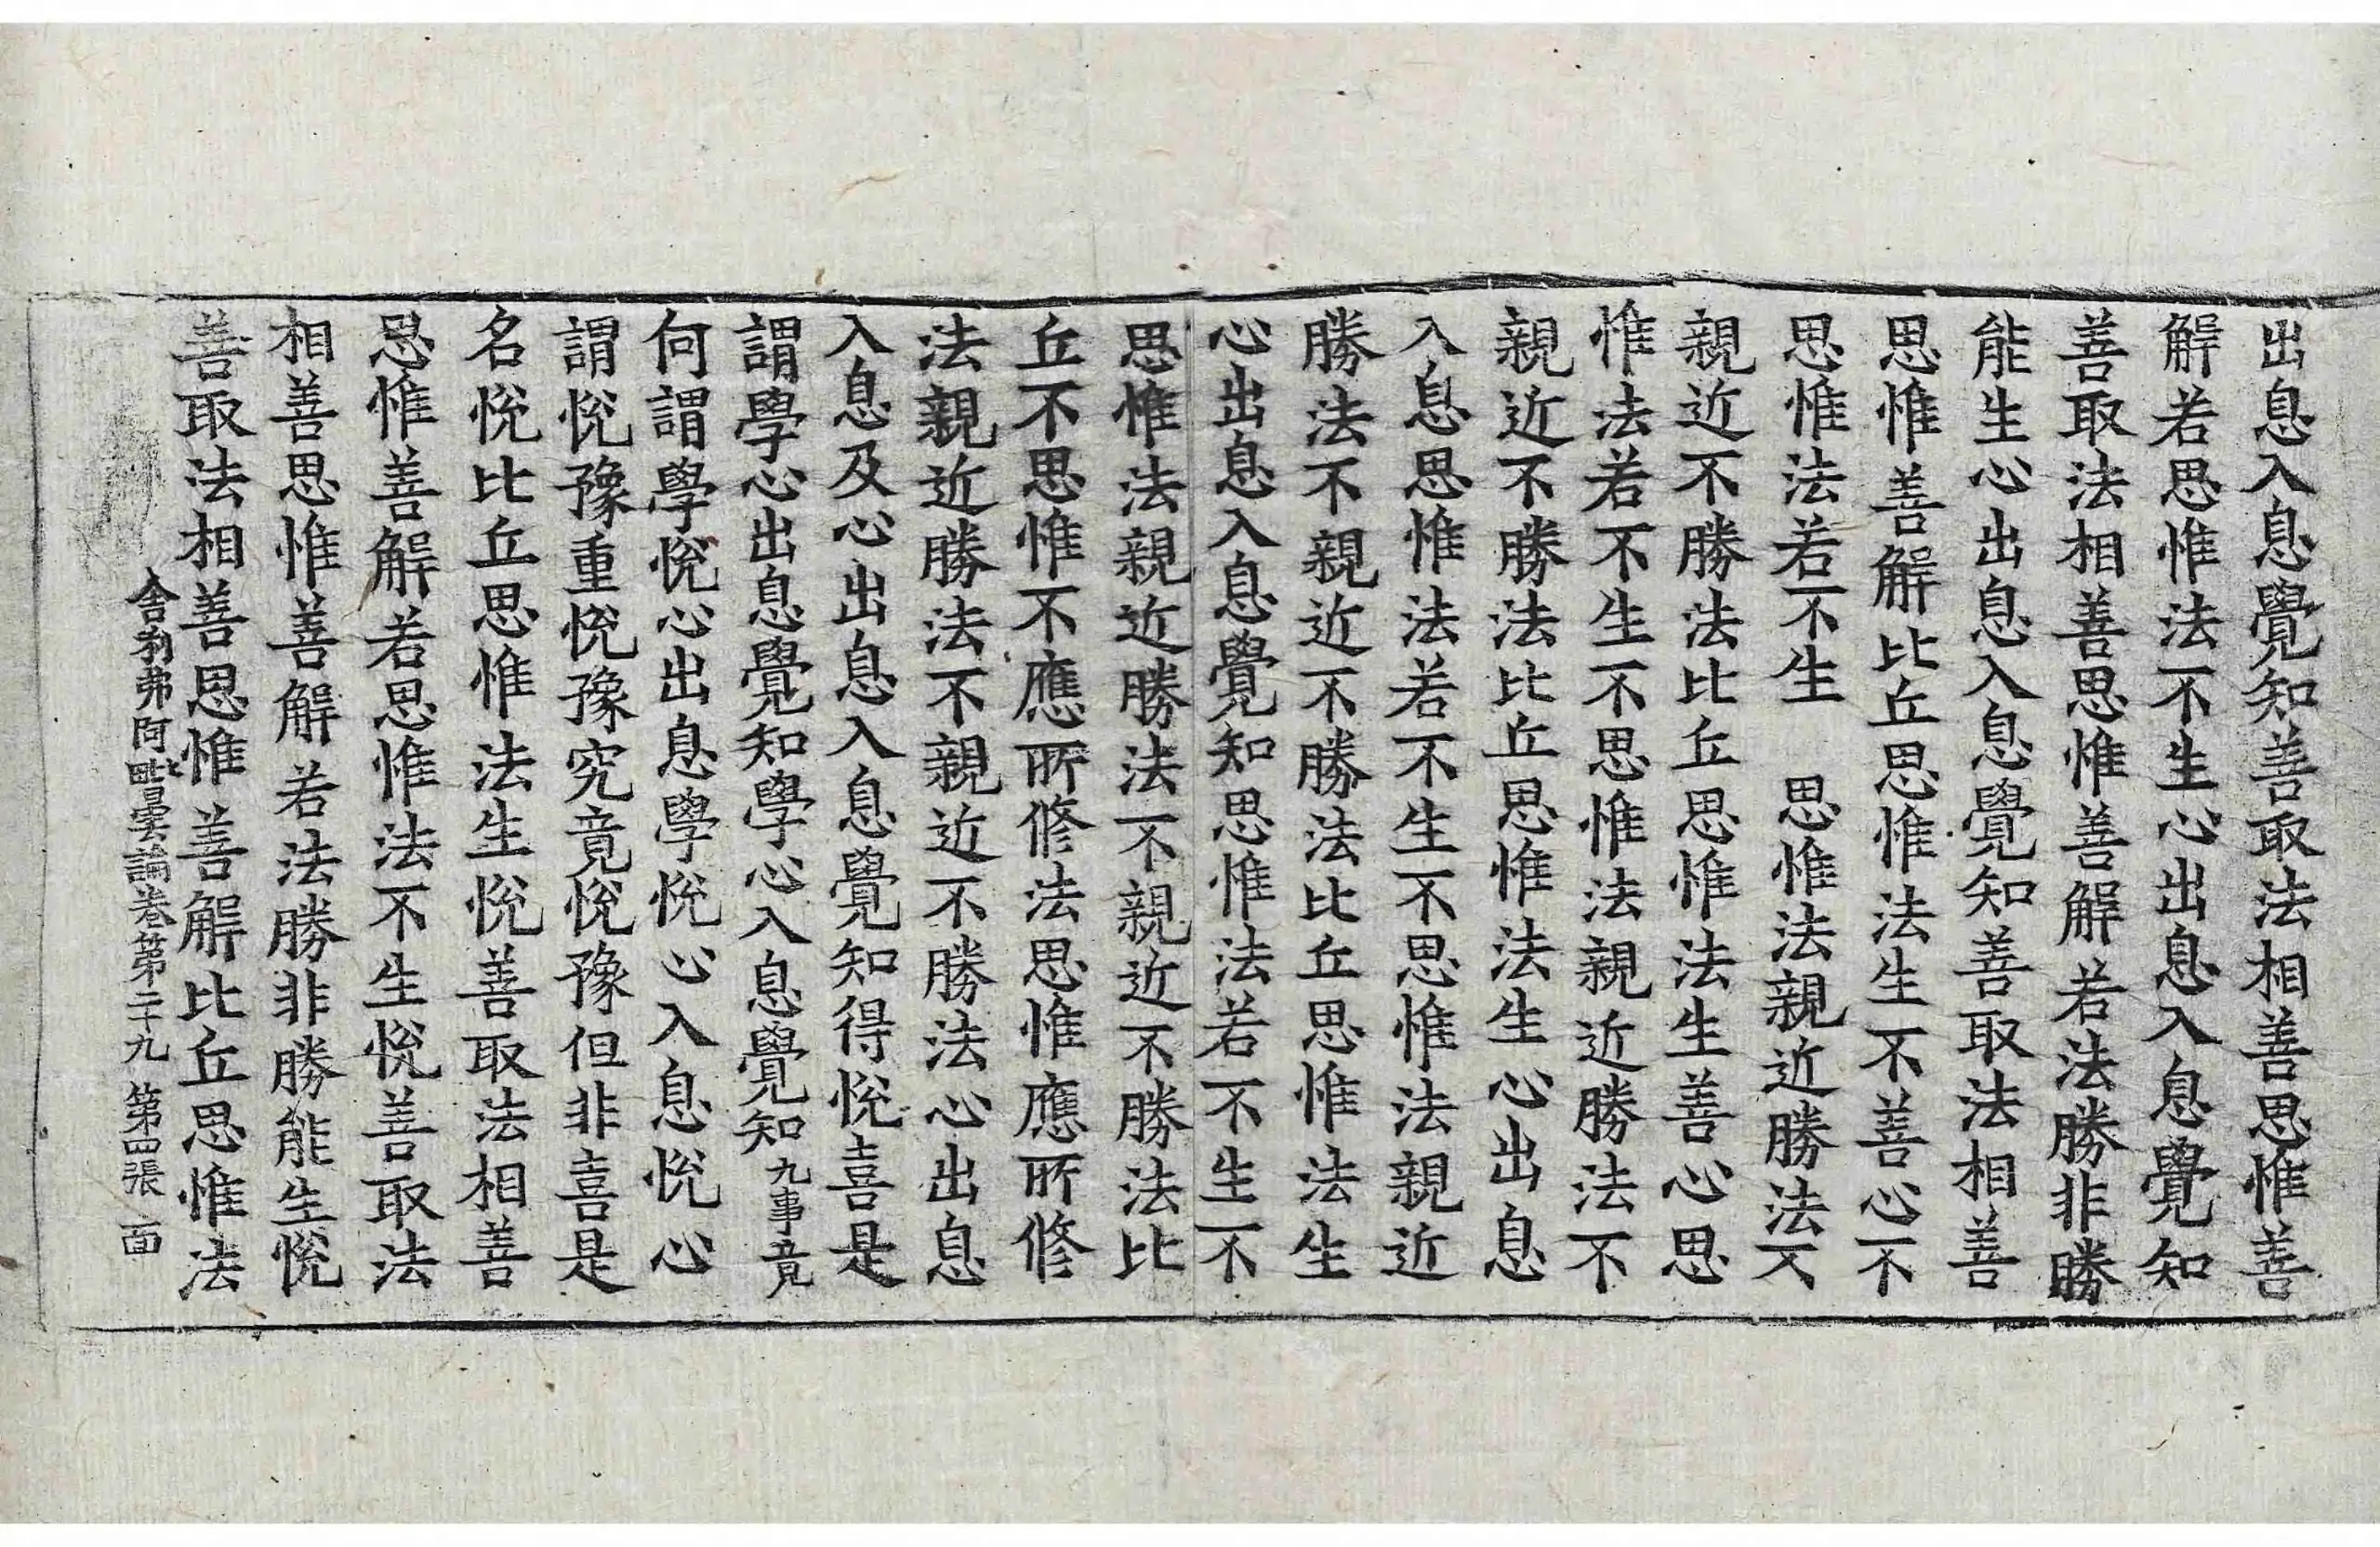 出息入息覺知善取法相善思惟善
解若思惟法不生心出息入息覺知
善取法相善思惟善解若法勝非勝
能生心出息入息覺知善取法相善
思惟善解比丘思惟法生不善心不
思惟法若不生 思惟法親近勝法不
親近不勝法比丘思惟法生善心思
惟法若不生不思惟法親近勝法不
親近不勝法比丘思惟法生心出息
入息思惟法若不生不思惟法親近
勝法不親近不勝法比丘思惟法生
心出息入息覺知思惟法若不生不
思惟法親近勝法不親近不勝法比
丘不思惟不應所修法思惟應所修
法親近勝法不親近不勝法心出息
入息及心出息入息覺知得悅喜是
謂學心出息覺知學心入息覺知九事竟
何謂學悅心出息學悅心入息悅心
謂悅豫重悅豫究竟悅豫但非喜是
名悅比丘思惟法生悅善取法相善
思惟善解若思惟法不生悅善取法
相善思惟善解若法勝非勝能生悅
善取法相善思惟善解比丘思惟法
舍利弗阿毗曇論卷第二十九 第四張 面